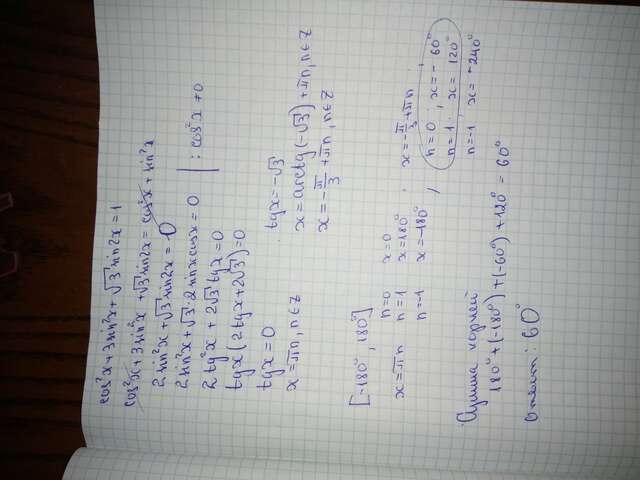 cos²x+3sin²x+√3 sin2x=1
cos²x+3sin²x+√3 sin2x=cos²x+sin²x
2sin²x+√3 sin2x=0
2sin²x+√3·2sinxcosx=0 | : cos²x≠0
2tg²x+2√3 tgx=0
tgx(2tgx+2√3)=0
tgx=0 tgx=-√3
x=πn, n∈Z x=arctg(-√3)+πn, n∈Z
x=-π/3+πn, n∈Z
[-180°, 180°]
x=πn n=0 x=0 ; x=-π/3+πn
n=1 x=180° n=0 ; x=-60°
n=-1 x=-180° , n=1; x=120°
n=-1 x=-240°
Сумма корней
180°+(-180°)+(-60°)+120°=60°
Ответ: 60°